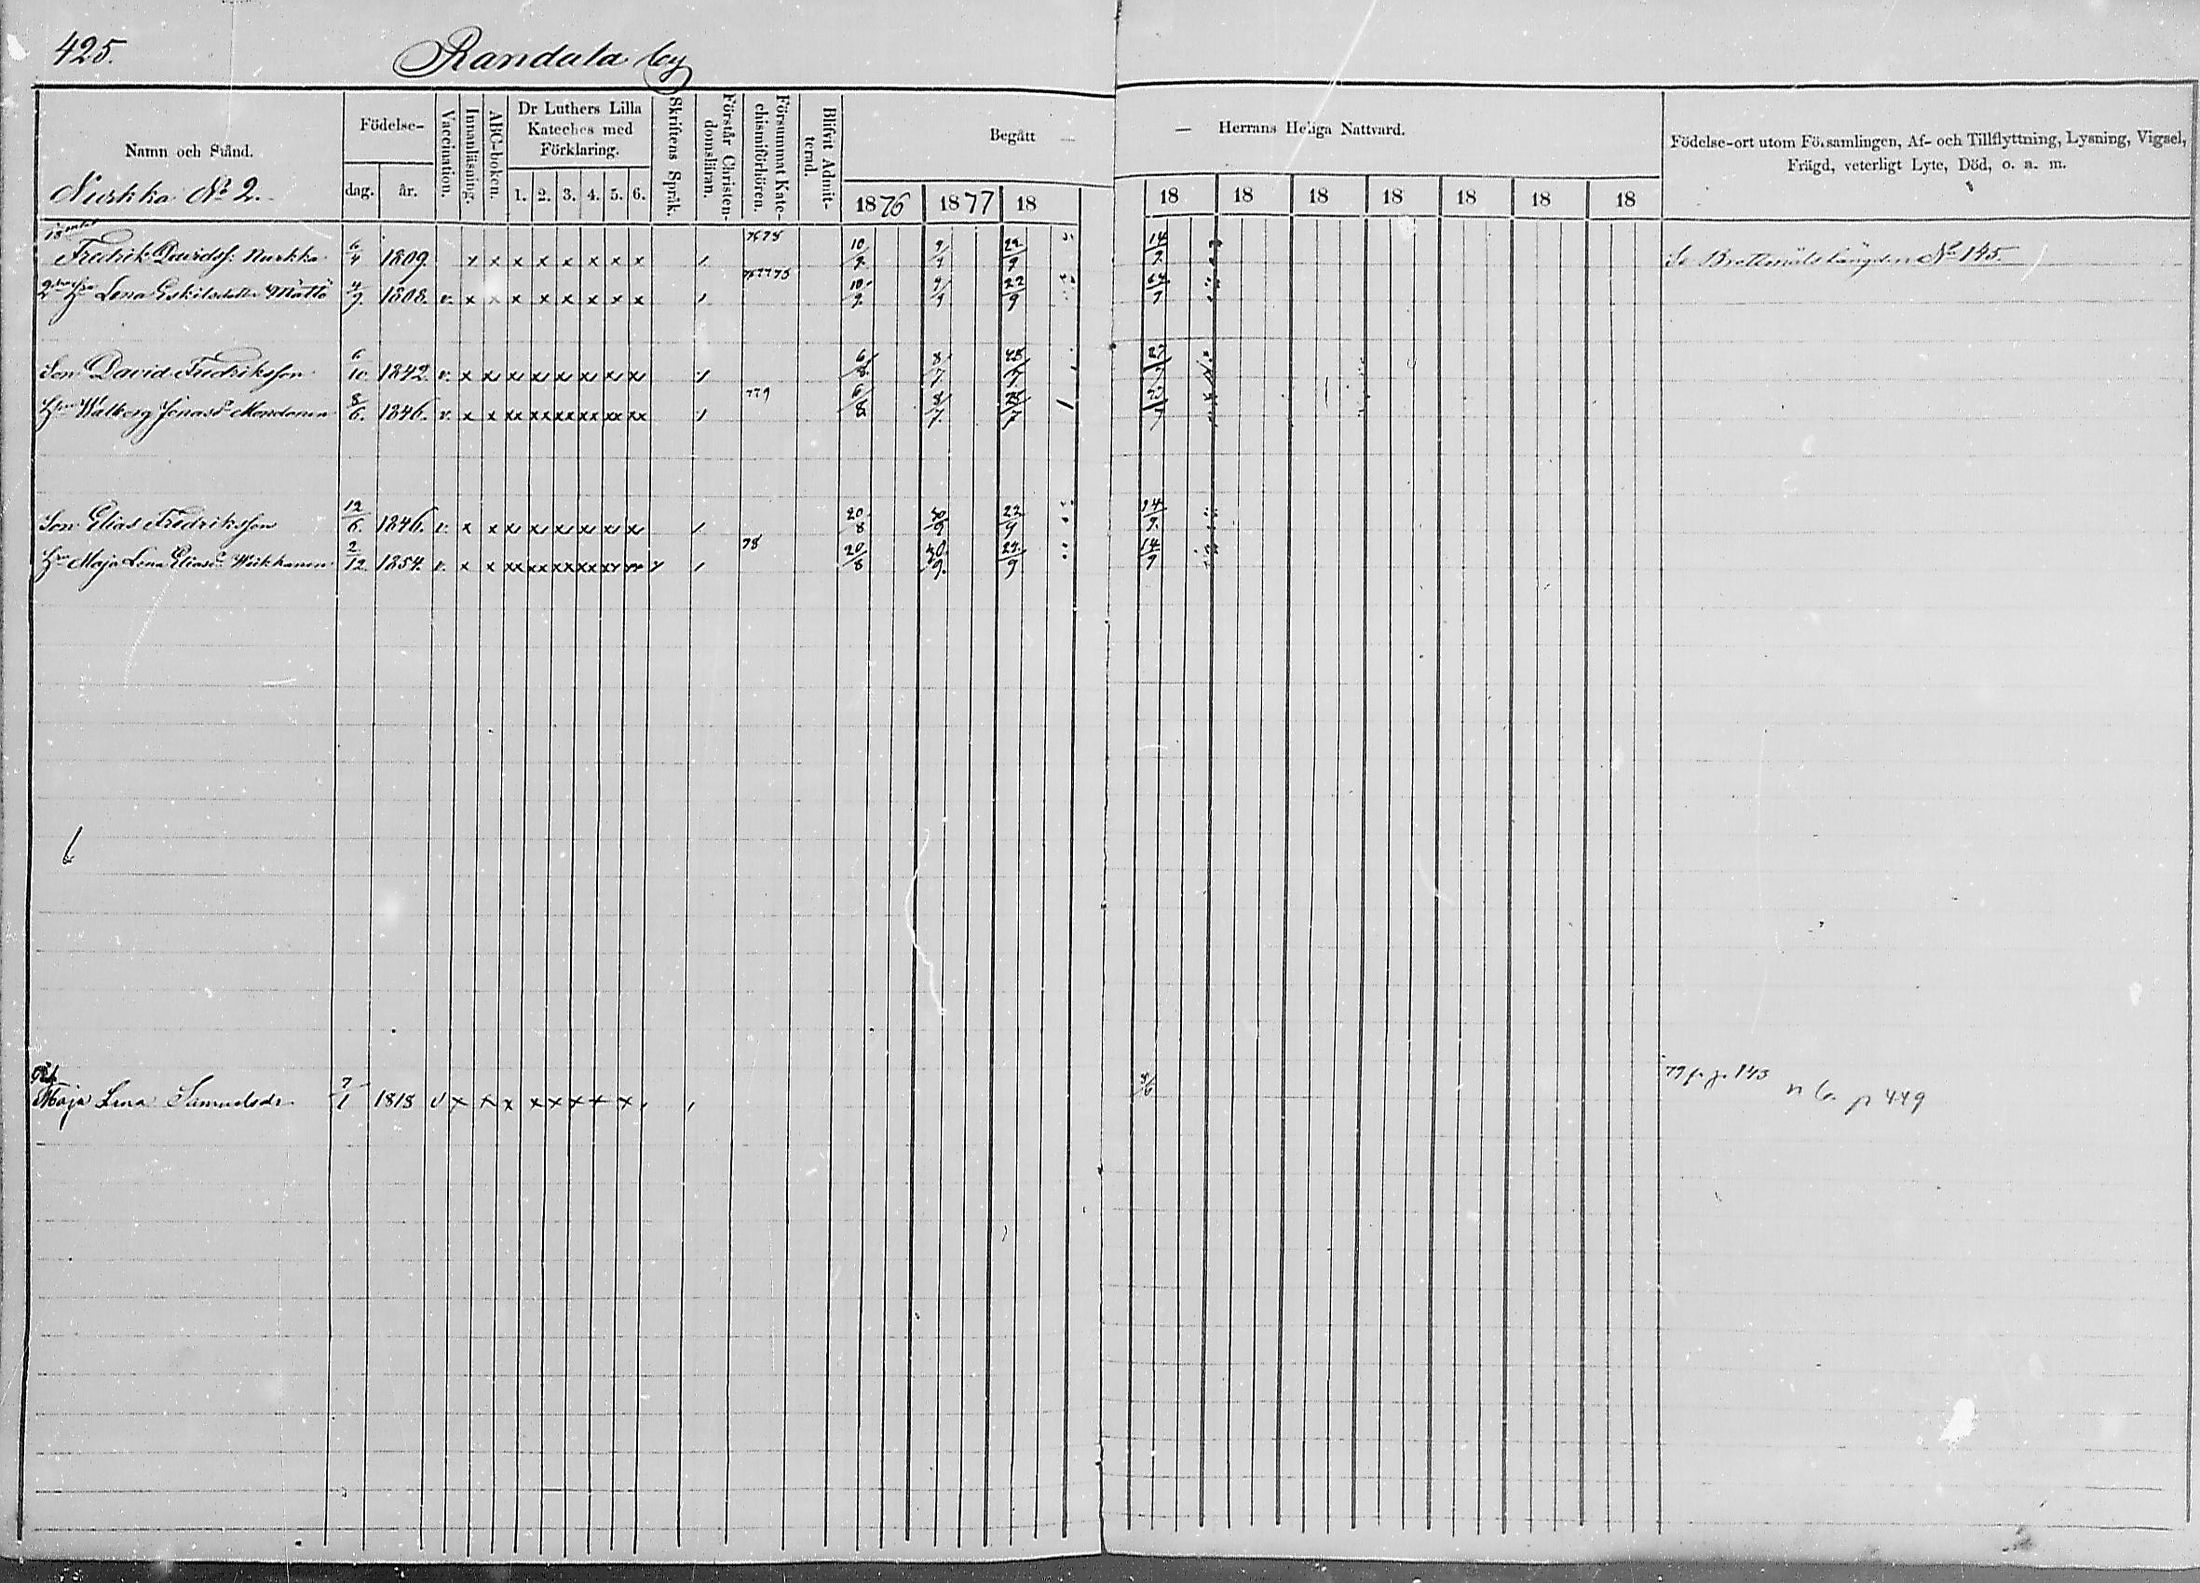 425. Randala by
Namn och Stånd.
Nurkka No 2.
Födelse-
dag. år.
Vaccination.
Innanläsning.
ABC-boken.
Dr Luthers Lilla
Kateches med
Förklaring.
1. 2. 3. 4. 5. 6.
Skriftens Språk.
Förstår Christen-
domsläran.
Försummat Kate-
chismiförhören.
Blifvit Admit-
terad.
Begått —
1876 1877 18
— Herrans Heliga Nattvard.
18 18 18 18 18 18 18
Födelse-ort utom Församlingen, Af- och Tillflyttning, Lysning, Vigsel,
Frägd, veterligt Lyte, Död, o. a. m.
Fredrik Davidss: Nurkka 6/4 1809. x x x x x x x x / 76 78 10/9 9/9 22/9 14/9 Se Brottmålslängden No 145.
Lena Eskilsdotter Mättö 4/9 1808. v. x x x x x x x x / 76 77 78 10/9 9/9 22/9
Son David Fredriksson 6/10 1842. v. x x x x x x x x / 6/8 8/7 28/7 27/7
Walborg Jonasd. 8/6. 1846. v. x x xx xx xx xx xx xx / 779 6/8 8/7 28/7 27/7
Son Elias Fredriksson 12/6. 1846. v. x x x x x x x x / 20/8 30/9 22/9 14/9.
Maja Lena Eliasd. Wiikkanen 2/12 1854. v. x x xx xx xx xx xx xx / 78 20/8 30/9. 22/9 14/9
Maja Lena Samuelsdr 7/1 1818 v x x x x x x x x / 8/6 79 fr. p. 143 n 6. p 449